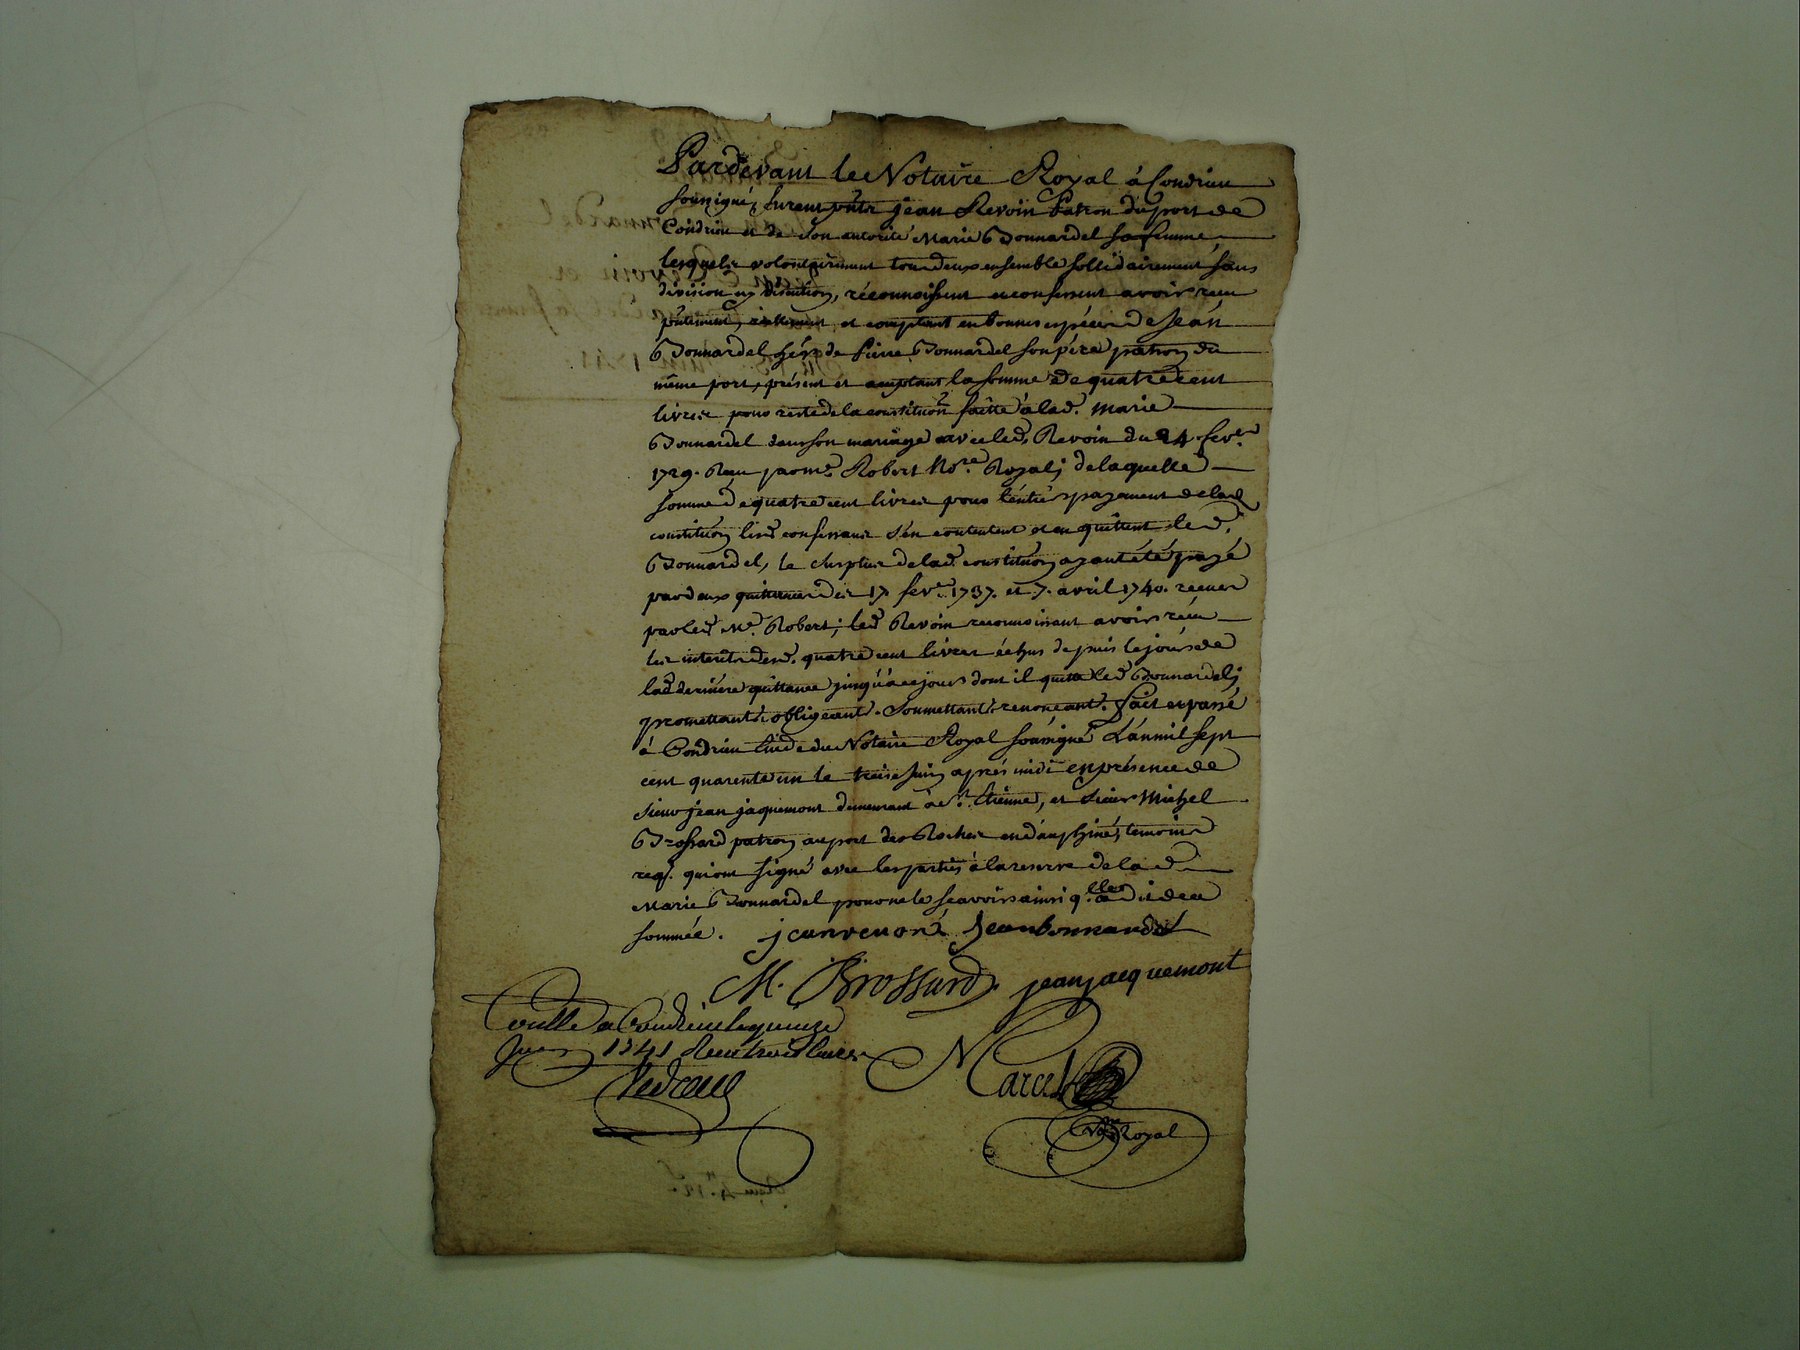 Pardevant le Notaire Royal à Condrieu
soussigné, furent pñts jean Revoin Patron du port de
Condrieu et de son autorité Marie Bonnardel sa femme
lesquels volontairement tous deux ensemble sollidairement sans
division ny discution, réconnoissent et confessent avoir reçu
pñtement, réellement et comptant en bonnes espéces de Jean
Bonnardel hér. de Pierre Bonnardel son pére patron du
même port, présent et acceptant la somme de quatre cent
livres pour reste de la constituõn faitte à lad. Marie
Bonnardel dans son mariage avec led. Revoin du 24 fevr.
1729. Recu par me. Robert Nore. Royal; de laquelle
somme de quatre cent livres pour l'entier payement de lad
constituõn lesd confessans s'en contentent et en quittent led.
Bonnardel, le surplus de lad. constituõn ayant été payé
par deux quittances des 17 fevr. 1737. et 7. avril 1740. recues
par led Me. Robert; led Revoin reconnoissant avoir réçu
les interêts desd. quatre cent livres échus depuis le jour de
lad derniére quittance jusqu'à ce jour dont il quitte led Bonnardel;
promettant. obligeant. Soumettant. renonceant. fait et passé
à Condrieu Etude du Notaire Royal soussigné L'an mil sept
cent quarente un le treise Juin aprés midi en présence de
sieur jean jaquemont demeurant à St. Etienne, et sieur Michel
Brossard patron au port des Roches en dauphiné, temoins
req. qui ont signé avec les parties à la reserve de lad
Marie Bonnardel pour ne le scavoir ainsi q.lle a dit de ce
sommée. jean revoné Jean bonnardel
M. Brossard. jean jacquemont
Contlle a Condrieu le quinze
Juin 1741 Recu trois livres
Marcel
Nore Royal